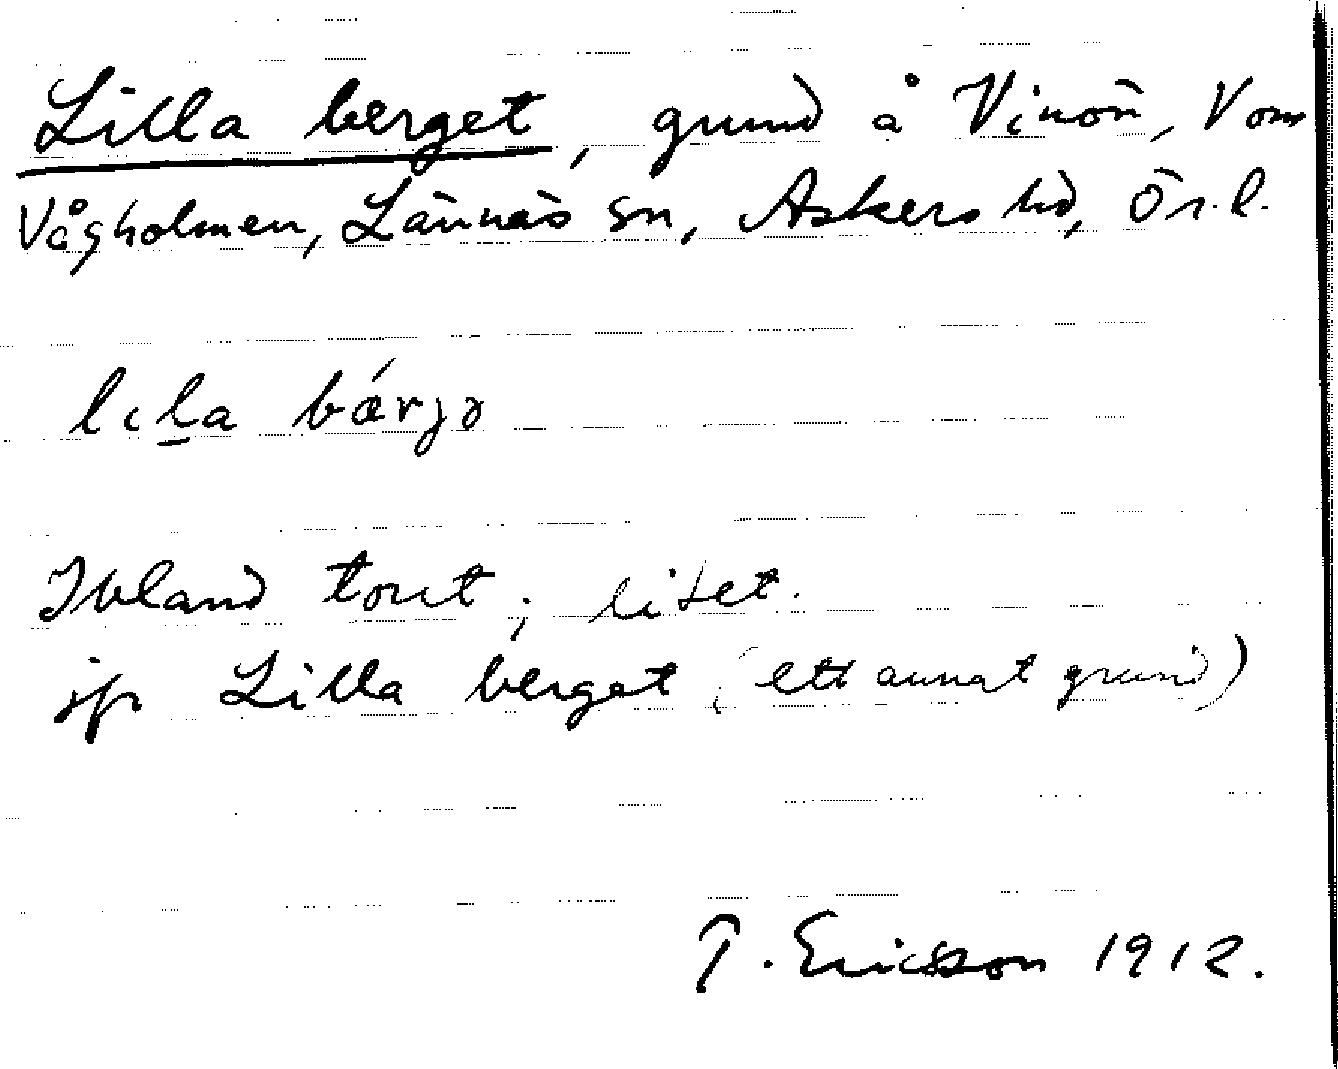 Lilla berget, grund å Vinön, V om
Vågholmen, Lännäs sn, Askers hd, Ör. l.
lıla bǽrjə
Ibland torrt; litet.
jfr Lilla berget (ett annat grund)
T. Ericsson 1912.